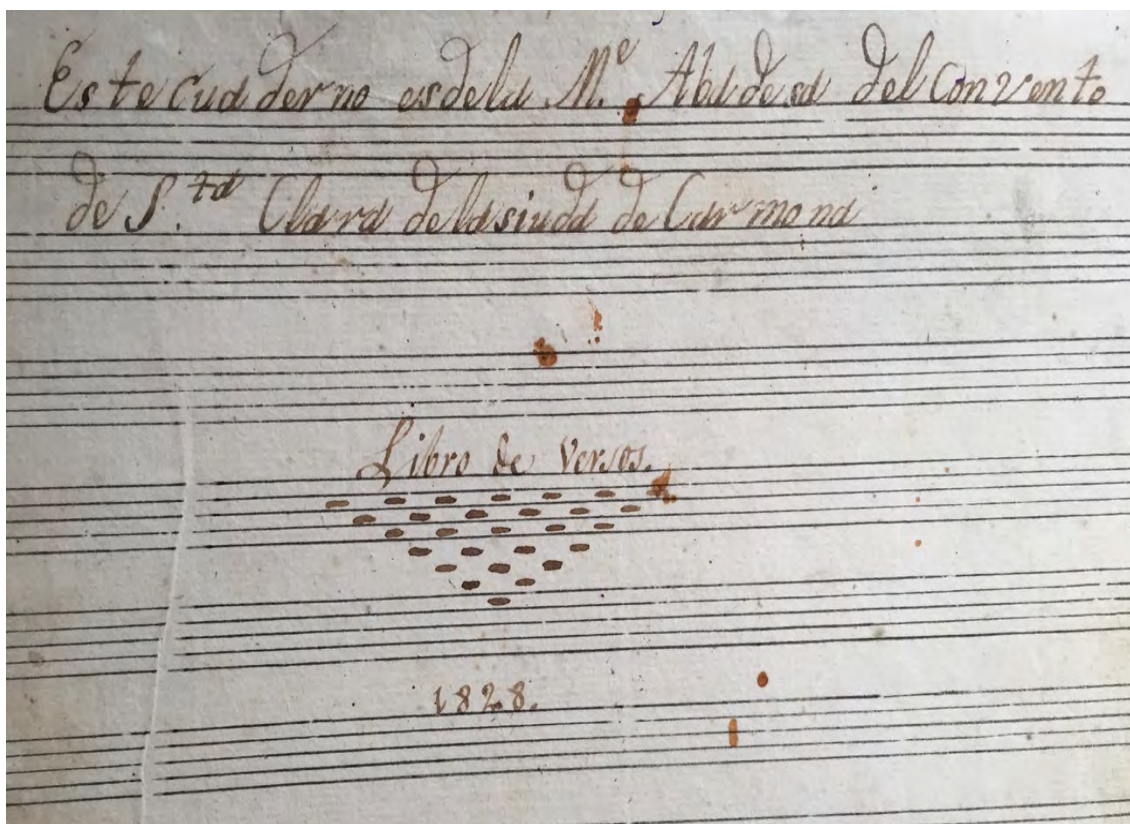 Este cuaderno es dela M.e Abadesa del Convento
de S.ta Clara dela siuda de Carmona
Libro de Versos.
1828.